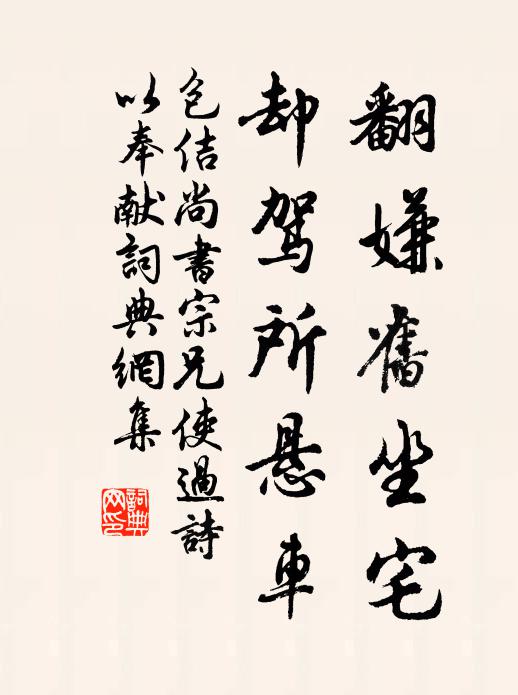 翻嫌舊坐宅
却駕所懸車
包佶尚書宗兄使過詩
以奉献詞典網集
詞典
网印